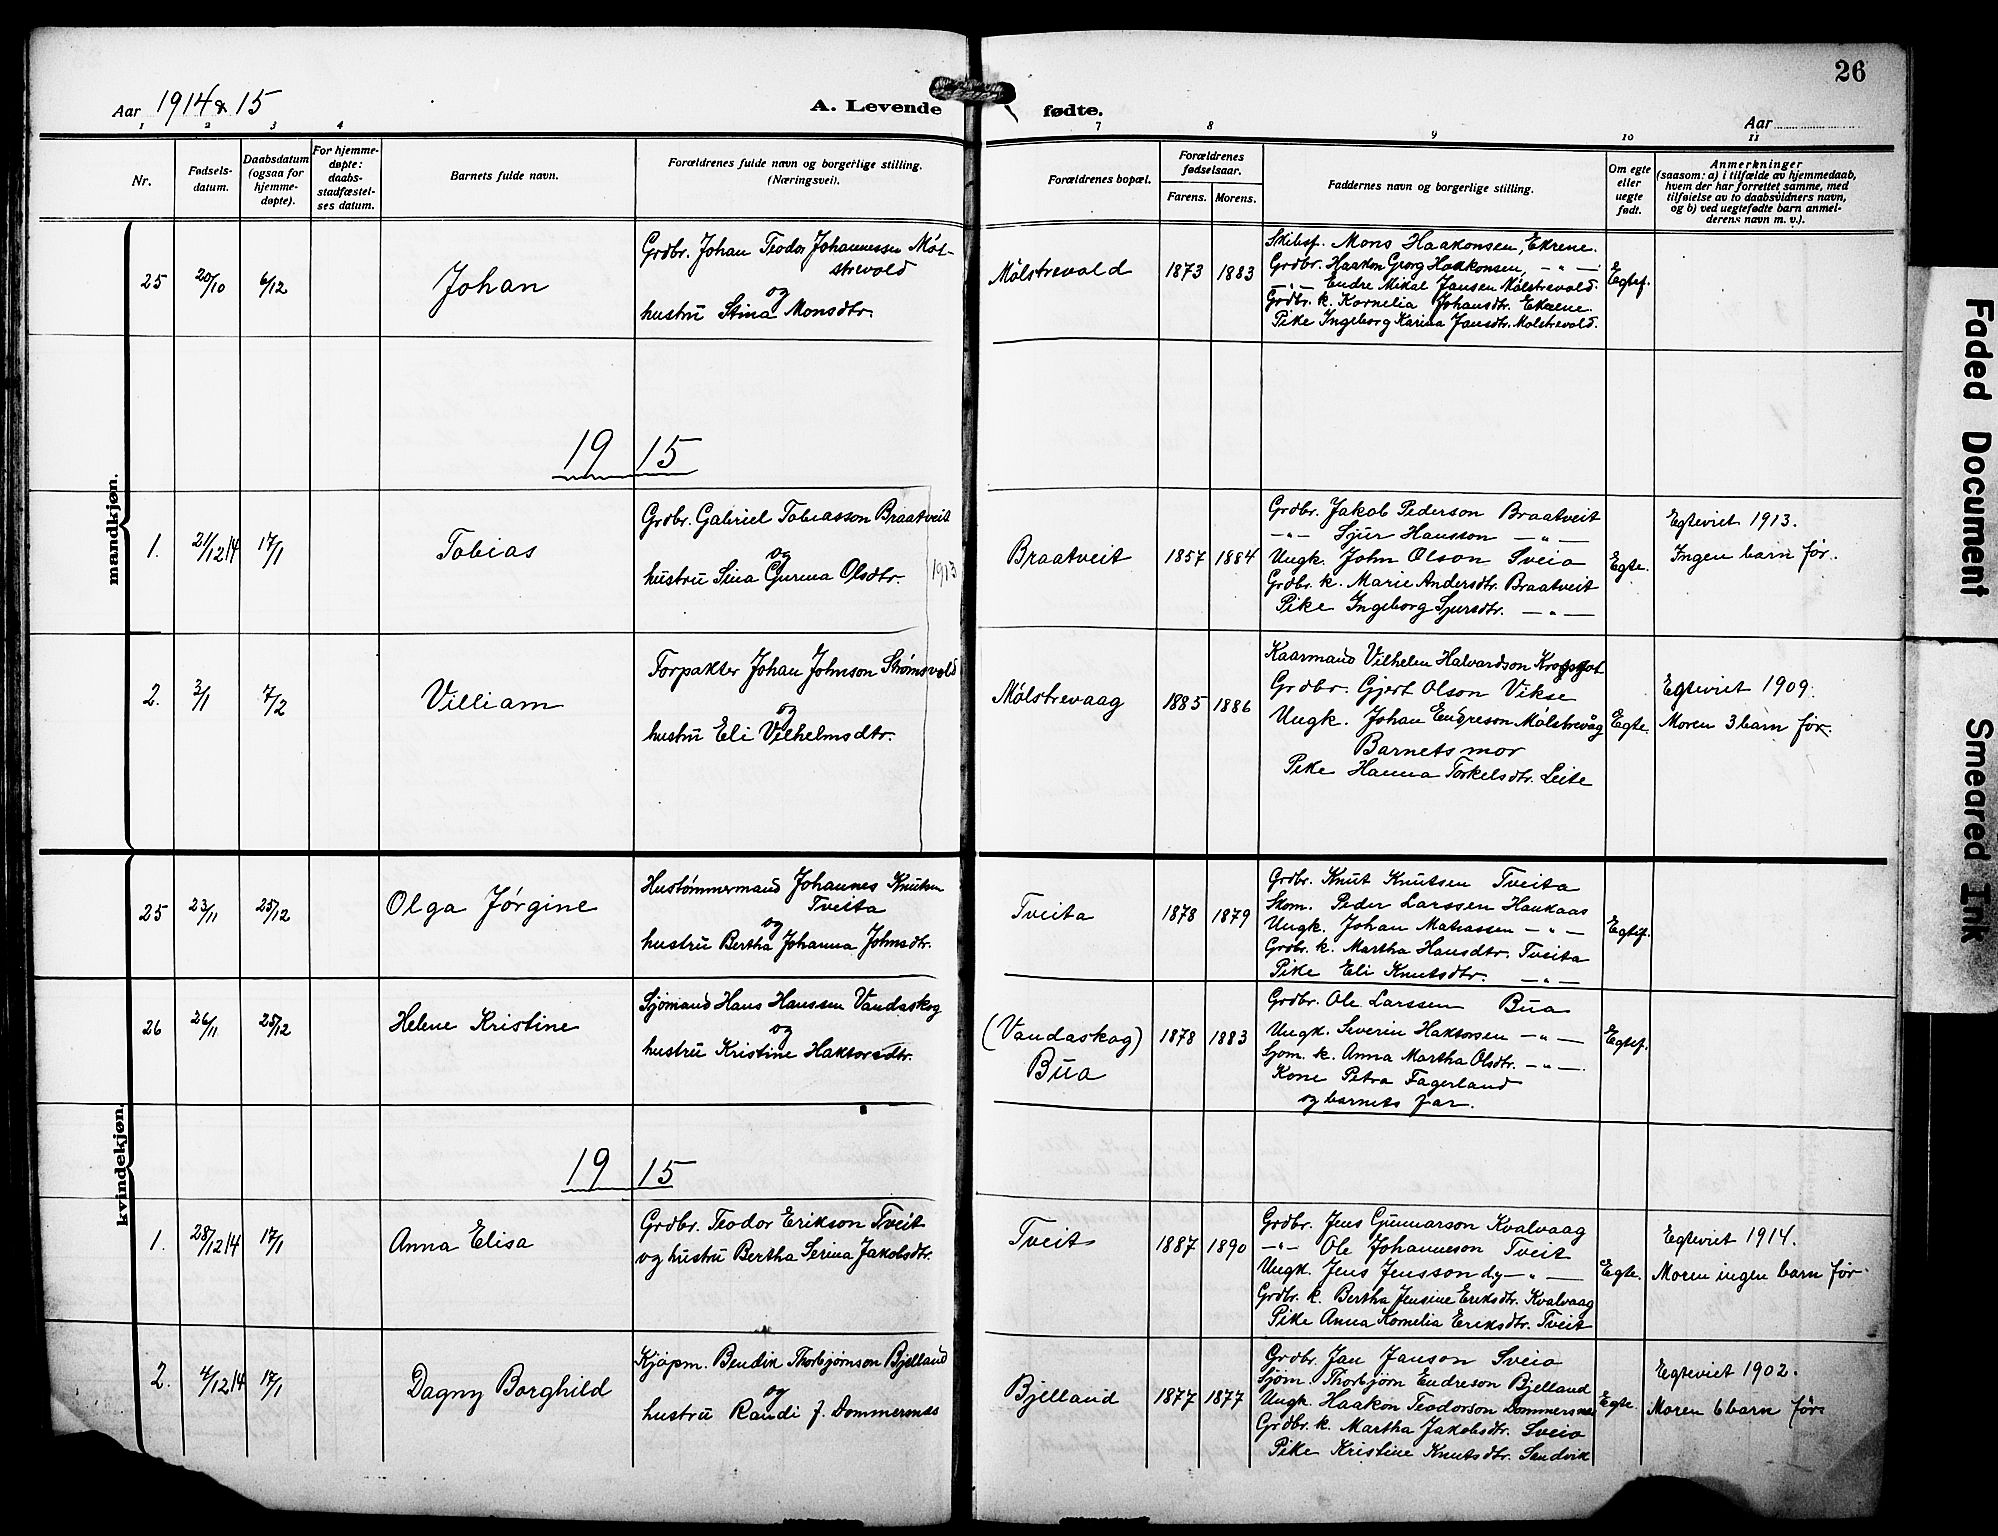 26
Aar 1914 & 15
A. Levende fødte.
Aar
1 2 3 4 7 8 9 10 11
Nr.
Fødsels-
datum.
Daabsdatum
(ogsaa for
hjemme-
døpte).
For hjemme-
døpte:
daabs-
stadfæstel-
ses datum.
Barnets fulde navn.
Forældrenes fulde navn og borgerlige stilling.
(Næringsvei).
Forældrenes bopæl.
Forældrenes
fødselsaar.
Farens. Morens.
Faddernes navn og borgerlige stilling.
Om egte
eller
uegte
født.
Anmerkninger
(saasom: a) i tilfælde av hjemmedaab,
hvem der har forrettet samme, med
tilføielse av to daabsvidners navn,
og b) ved uegtefødte barn anmel-
derens navn m. v.).
mandkjøn.
25 20/10 6/12 Johan
Grdbr. Johan Teodor Johannessen Møl-
strevold
og
hustru Stina Monsdtr.
Mølstrevold 1873 1883
Skibsf. Mons Haakonsen, Ekrene.
Grdbr. Haakon Georg Haakonsen, — " —
— " — Endre Mikal Jansen Mølstrevold.
Grdbr. k. Kornelia Johansdtr. Ekrene.
Pike Ingeborg Karina Jansdtr. Mølstrevold.
Egtef.
1915
1. 21/12 14 17/1 Tobias
Grdbr. Gabriel Tobiasson Braatveit
og
hustru Sina Gurina Olsdtr.
1913
Braatveit 1857 1884
Grdbr. Jakob Pederson Braatveit
— " — Sjur Hansson — " —
Ungk. John Olson Sveio
Grdbr. k. Marie Andersdtr. Braatveit
Pike Ingeborg Sjursdtr. — " —
Egte.
Egteviet 1913.
Ingen barn før.
2. 3/1 7/2 Villiam
Forpakter Johan Johnson Strømsvold
og
hustru Eli Vilhelmsdtr.
Mølstrevaag 1885 1886
Kaarmand Vilhelm Halvardson
Grdbr. Gjert Olson Vikse
Ungk. Johan Endreson Mølstrevåg
Barnets mor
Pike Hanna Torkelsdtr. Leite
Egte.
Egteviet 1909.
Moren 3 barn før.
kvindekjøn.
25 23/11 25/12 Olga Jørgine
Hustømmermand Johannes Knutsen
Tveita
og
hustru Bertha Johanna Johnsdtr.
Tveita 1878 1879
Grdbr. Knut Knutsen Tveita
Skom. Peder Larssen Haukaas
Ungk. Johan Matiassen — " —
Grdbr. k. Martha Hansdtr. Tveita
Pike Eli Knutsdtr. — " —
Egtef.
26 26/11 25/12 Helene Kristine
Sjømand Hans Hanssen Vandaskog
og
hustru Kristine Haktorsdtr.
(Vandaskog)
Bua
1878 1883
Grdbr. Ole Larssen Bua
Ungk. Severin Haktorsen — " —
Sjøm. k. Anna Martha Olsdtr. — " —
Kone Petra Fagerland
og barnets far.
Egtef.
1915
1. 28/12 14 17/1 Anna Elisa
Grdbr. Teodor Erikson Tveit
og hustru Bertha Serina Jakobsdtr.
Tveit 1887 1890
Grdbr. Jens Gunnarson Kvalvaag
— " — Ole Johanneson Tveit
Ungk. Jens Jensson dy — " —
Grdbr. k. Bertha Jensine Eriksdtr. Kvalvaag
Pike Anna Kornelia Eriksdtr. Tveit
Egte.
Egteviet 1914.
Moren ingen barn før.
2. 4/12 14 17/1 Dagny Borghild
Kjøpm. Bendik Thorbjørnson Bjelland
og
hustru Randi f. Dommersnes
Bjelland 1877 1877
Grdbr. Jan Janson Sveio
Sjøm. Thorbjørn Endreson Bjelland
Ungk. Haakon Teodorson Dommersnes
Grdbr. k. Martha Jakobsdtr. Sveio
Pike Kristine Knutsdtr. Sandvik
Egte.
Egteviet 1902.
Moren 6 barn før
Faded Document
Smeared Ink